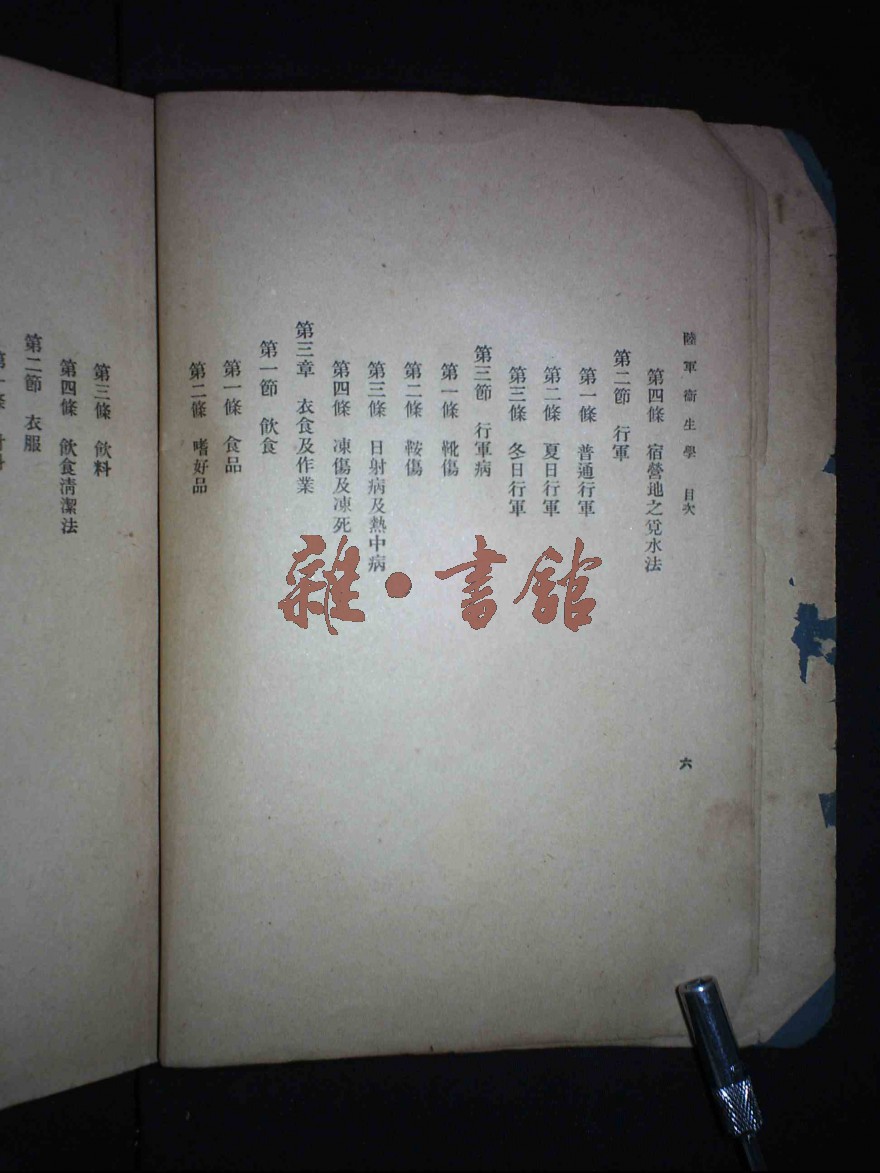 陸軍衞生學 目次
六
第四條 宿營地之覓水法
第二節 行軍
第一條 普通行軍
第二條 夏日行軍
第三條 冬日行軍
第三節 行軍病
第一條 靴傷
第二條 鞍傷
第三條 日射病及熱中病
第四條 凍傷及凍死
第三章 衣食及作業
第一節 飲食
第一條 食品
第二條 嗜好品
第三條 飲料
第四條 飲食淸潔法
第二節 衣服
雜·書館